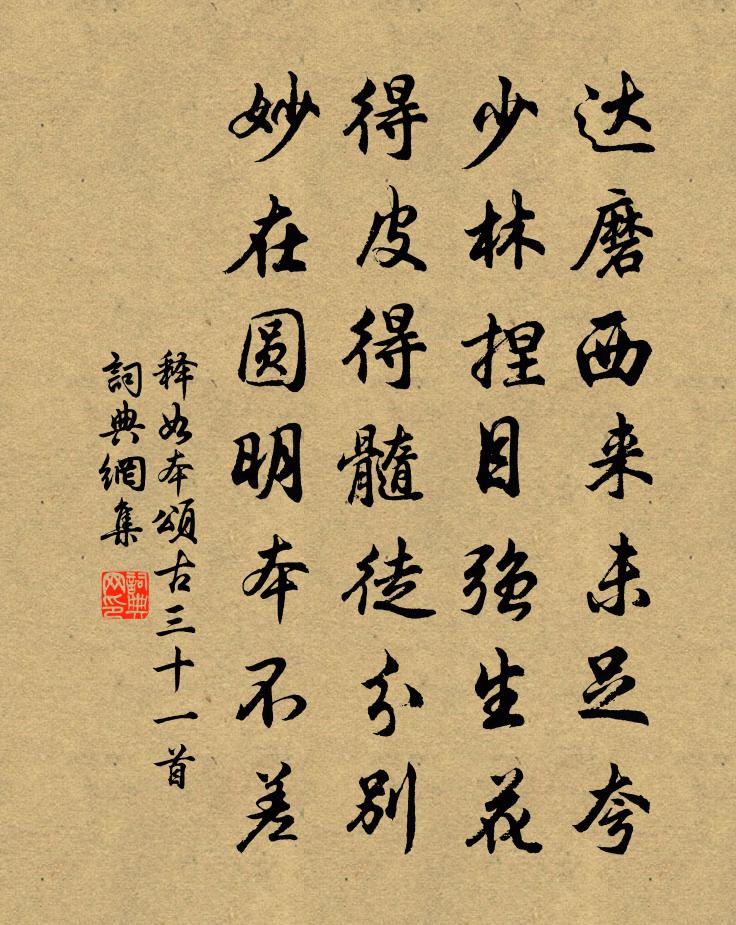 达磨西来未足夸
少林捏目强生花
得皮得髓徒分别
妙在圆明本不差
释如本颂古三十一首
詞典網集
詞典网印